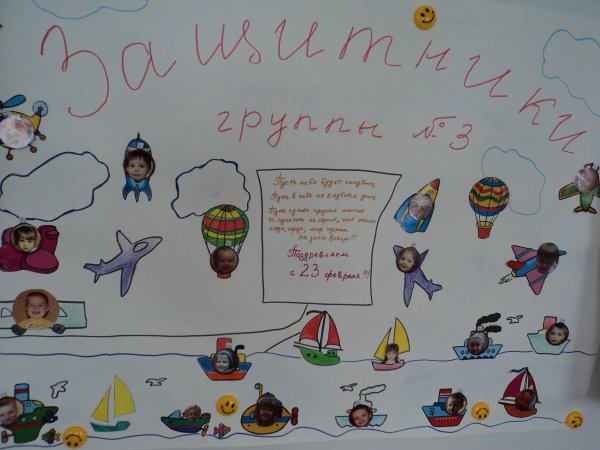 Защитники
группы №3
Пусть небо будет голубым,
Пусть в небе не клубится дым,
Пусть пушки грозные молчат
И пулеметы не строчат, чтоб жили
люди, города, мир нужен
на земле всегда!!!
Поздравляем
с 23 февраля!!!